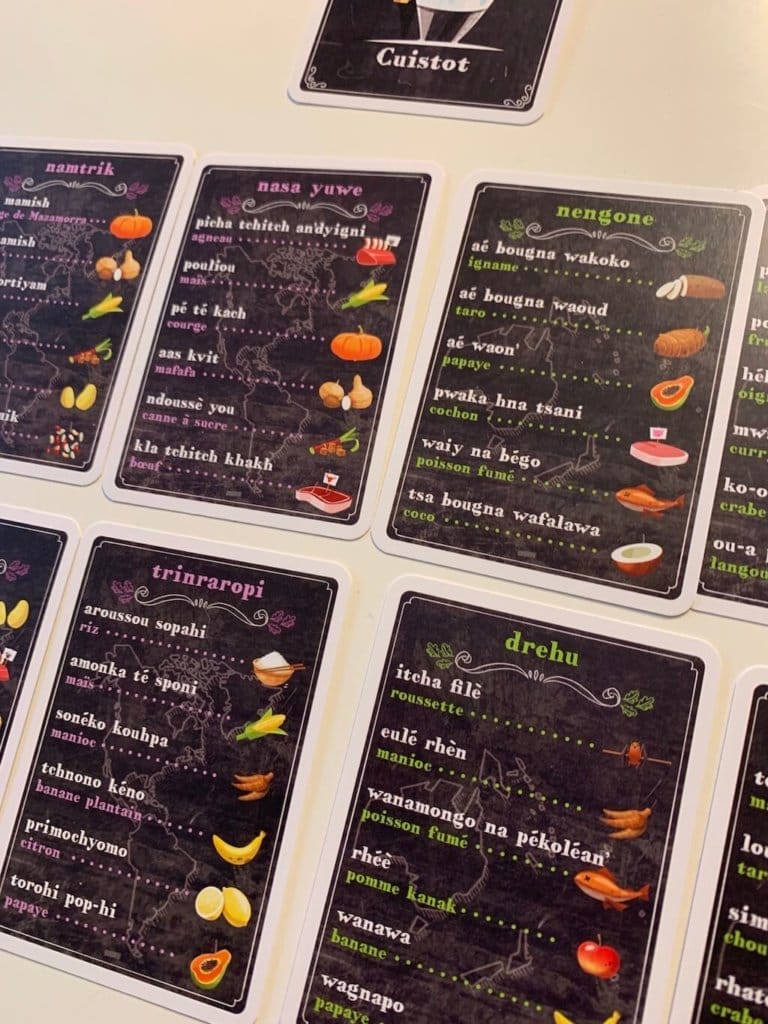 Cuistot
namtrik
mamish
ge de Mazamorra
amish
ortiyam
nik
nasa yuwe
picha tchitch andyigni
agneau
pouliou
maïs
pé té kach
courge
aas kvit
mafafa
ndoussè you
canne à sucre
kla tchitch khakh
bœuf
nengone
aé bougna wakoko
igname
aé bougna waoud
taro
aé waon'
papaye
pwaka hna tsani
cochon
waiy na bégo
poisson fumé
tsa bougna wafalawa
coco
hél
oig
mw
curr
ko-o
crabe
ou-a
langou
trinraropi
aroussou sopahi
riz
amonka té sponi
maïs
sonéko kouhpa
manioc
tchnono kéno
banane plantain
primochyomo
citron
torohi pop-hi
papaye
drehu
itcha filè
roussette
eulé rhèn
manioc
wanamongo na pékoléan'
poisson fumé
rhéè
pomme kanak
wanawa
banane
wagnapo
papaye
lou
tar
sim
chou
rhat
crabe